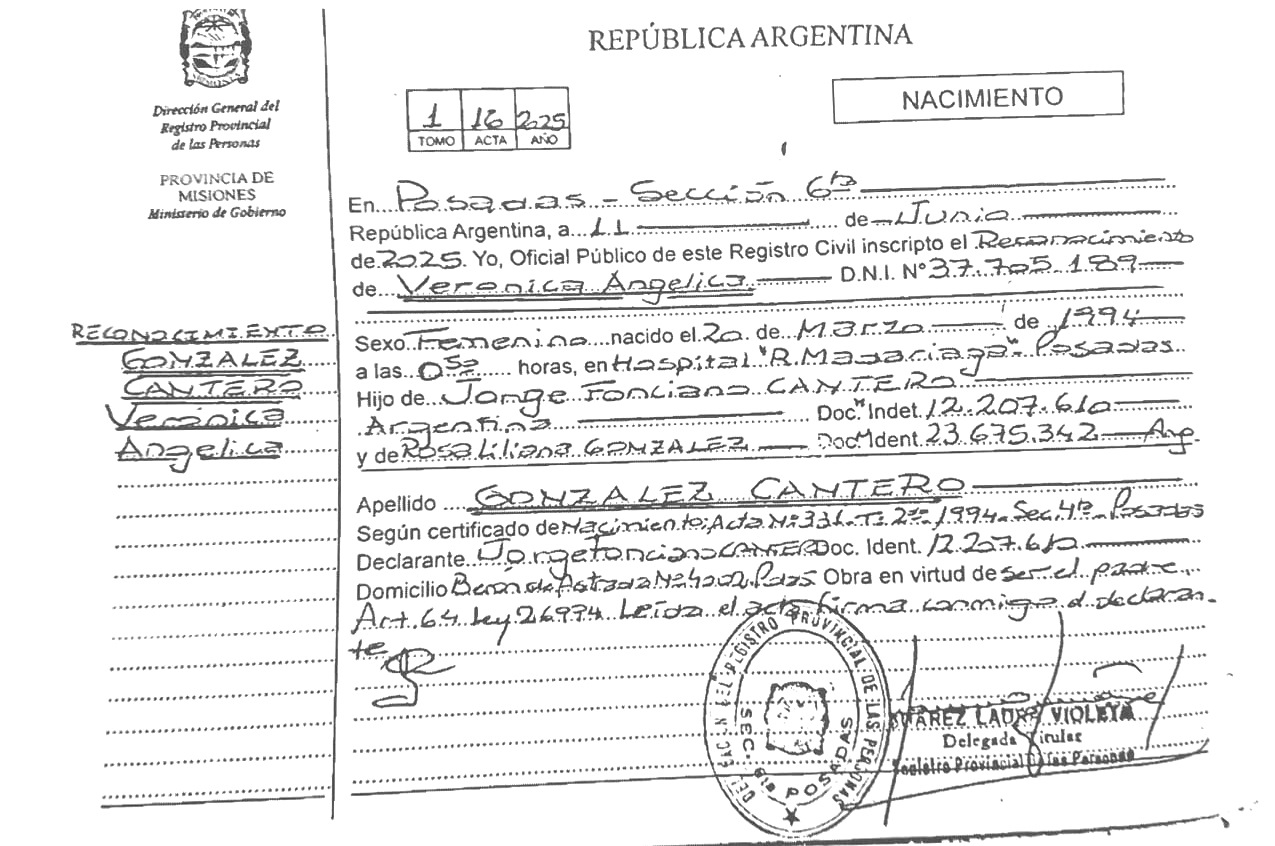 Dirección General del
Registro Provincial
de las Personas
PROVINCIA DE
MISIONES
Ministerio de Gobierno
RECONOCIMIENTO
GONZALEZ
CANTERO
Verónica
Angelica
REPÚBLICA ARGENTINA
1 16 2025
TOMO ACTA AÑO
NACIMIENTO
En Posadas - Sección 6ta
República Argentina, a 11 de Junio
de 2025. Yo, Oficial Público de este Registro Civil inscripto el Reconocimiento
de Veronica Angelica D.N.I. N° 37.705.189
Sexo Femenino nacido el 20 de Marzo de 1994
a las 0 50 horas, en Hospital "R. Madariaga" Posadas
Hijo de Jorge Fonciano CANTERO
Argentina Doc. Indet. 12.207.610
y de Rosa Liliana GONZALEZ Doc. Ident. 23.675.342 Arg.
Apellido GONZALEZ CANTERO
Según certificado de Nacimiento: Acta N: 331. T: 2do 1994. Sec. 4ta. Posadas
Declarante Jorge Fonciano CANTERO Doc. Ident. 12.207.610
Domicilio Berón de Astrada N° 4002. Pdas Obra en virtud de ser el padre.
Art. 64 Ley 26994 Leída el acta firma conmigo el declaran-
te
DELEGACION DEL REGISTRO PROVINCIAL DE LAS PERSONAS
SEC. 6ta POSADAS
SUAREZ LAURA VIOLETA
Delegada Titular
Registro Provincial de las Personas